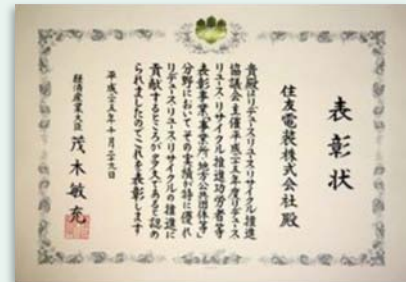 表彰状
住友電装株式会社殿
貴殿はリデュース・リユース・リサイクル推進
協議会主催平成二五年度リデュース・
リユース・リサイクル推進功労者等
表彰事業「事業所・地方公共団体等」
分野においてその実績が特に優れ
リデュース・リユース・リサイクルの推進に
貢献するところが多大であると認め
られましたのでこれを表彰します
平成二五年十月二九日
経済産業大臣 茂木敏充